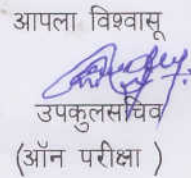 आपला विश्वासू
उपकुलसचिव
(ऑन परीक्षा )